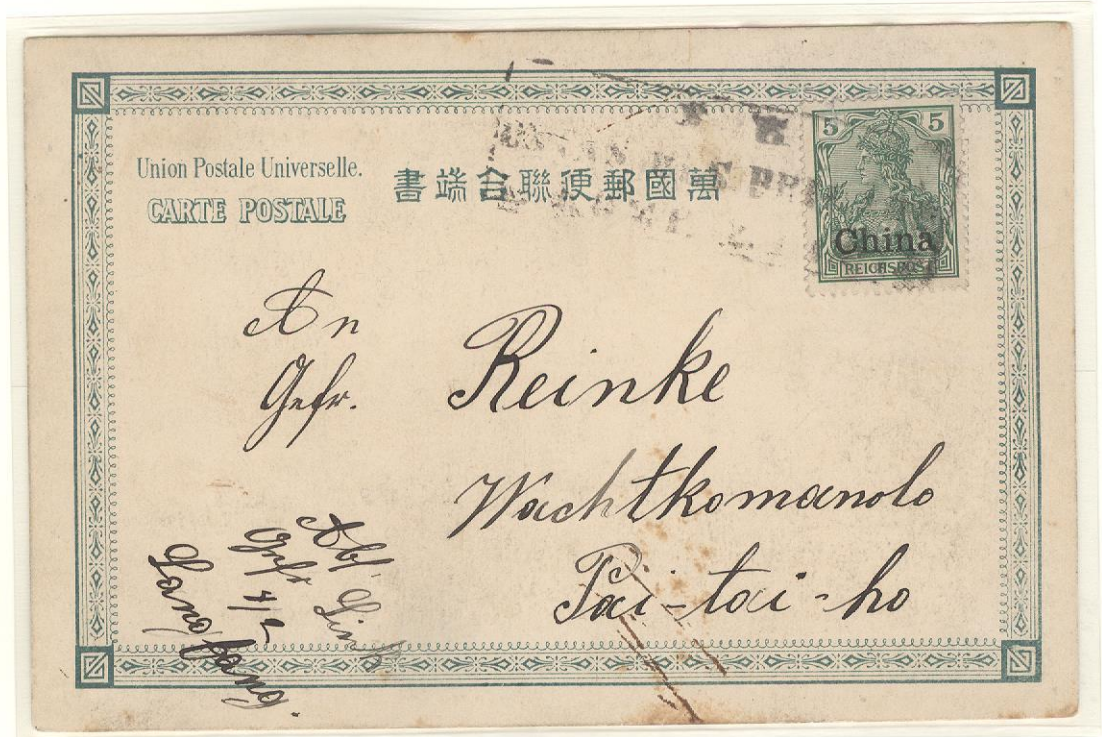 Union Postale Universelle.
CARTE POSTALE
書端合聯便郵國萬
5 5
China
REICHSPOST
An
Gefr. Reinke
Wachtkomando
Pai-tai-ho
Abs.
Gefr
Langfang.